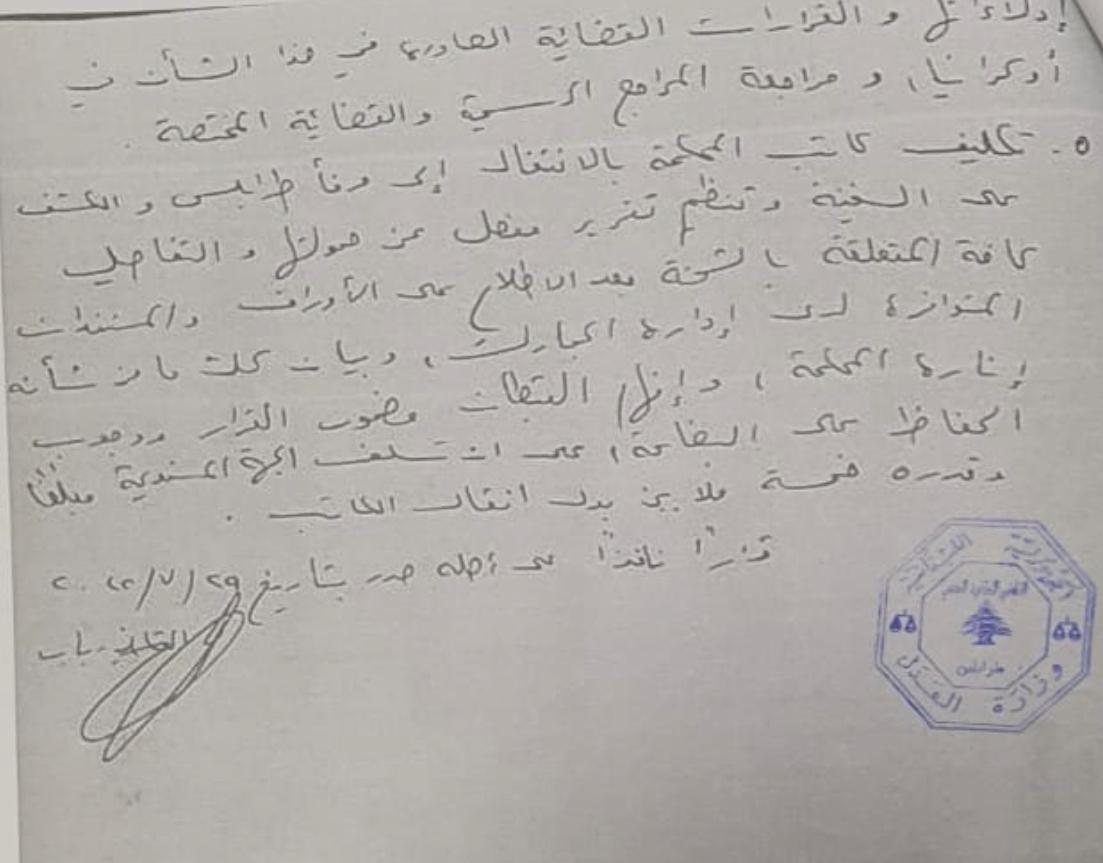 إدلاءاتها و القرارات القضائية الصادرة في هذا الشأن في
أوكرانيا، و مراجعة المراجع الرسمية والقضائية المختصة .
٥ - تكليف كاتب المحكمة بالانتقال إلى مرفأ طرابلس و الكشف
على السفينة و تنظيم تقرير مفصل عن حمولتها و التفاصيل
كافة المتعلقة بالشحنة بعد الاطلاع على الأوراق والمستندات
المتوافرة لدى إدارة الجمارك، وبيان كل ما من شأنه
إنارة المحكمة، وإبلاغ القبطان مضمون القرار ووجوب
الحفاظ على البضاعة، على ان تسلف الجهة المستدعية مبلغاً
وقدره خمسة ملايين بدل انتقال الكاتب .
قراراً نافذاً على أصله صدر بتاريخ ٢٩/٧/٢٠٢٢
القاضي
الجمهورية اللبنانية
طرابلس
وزارة العدل